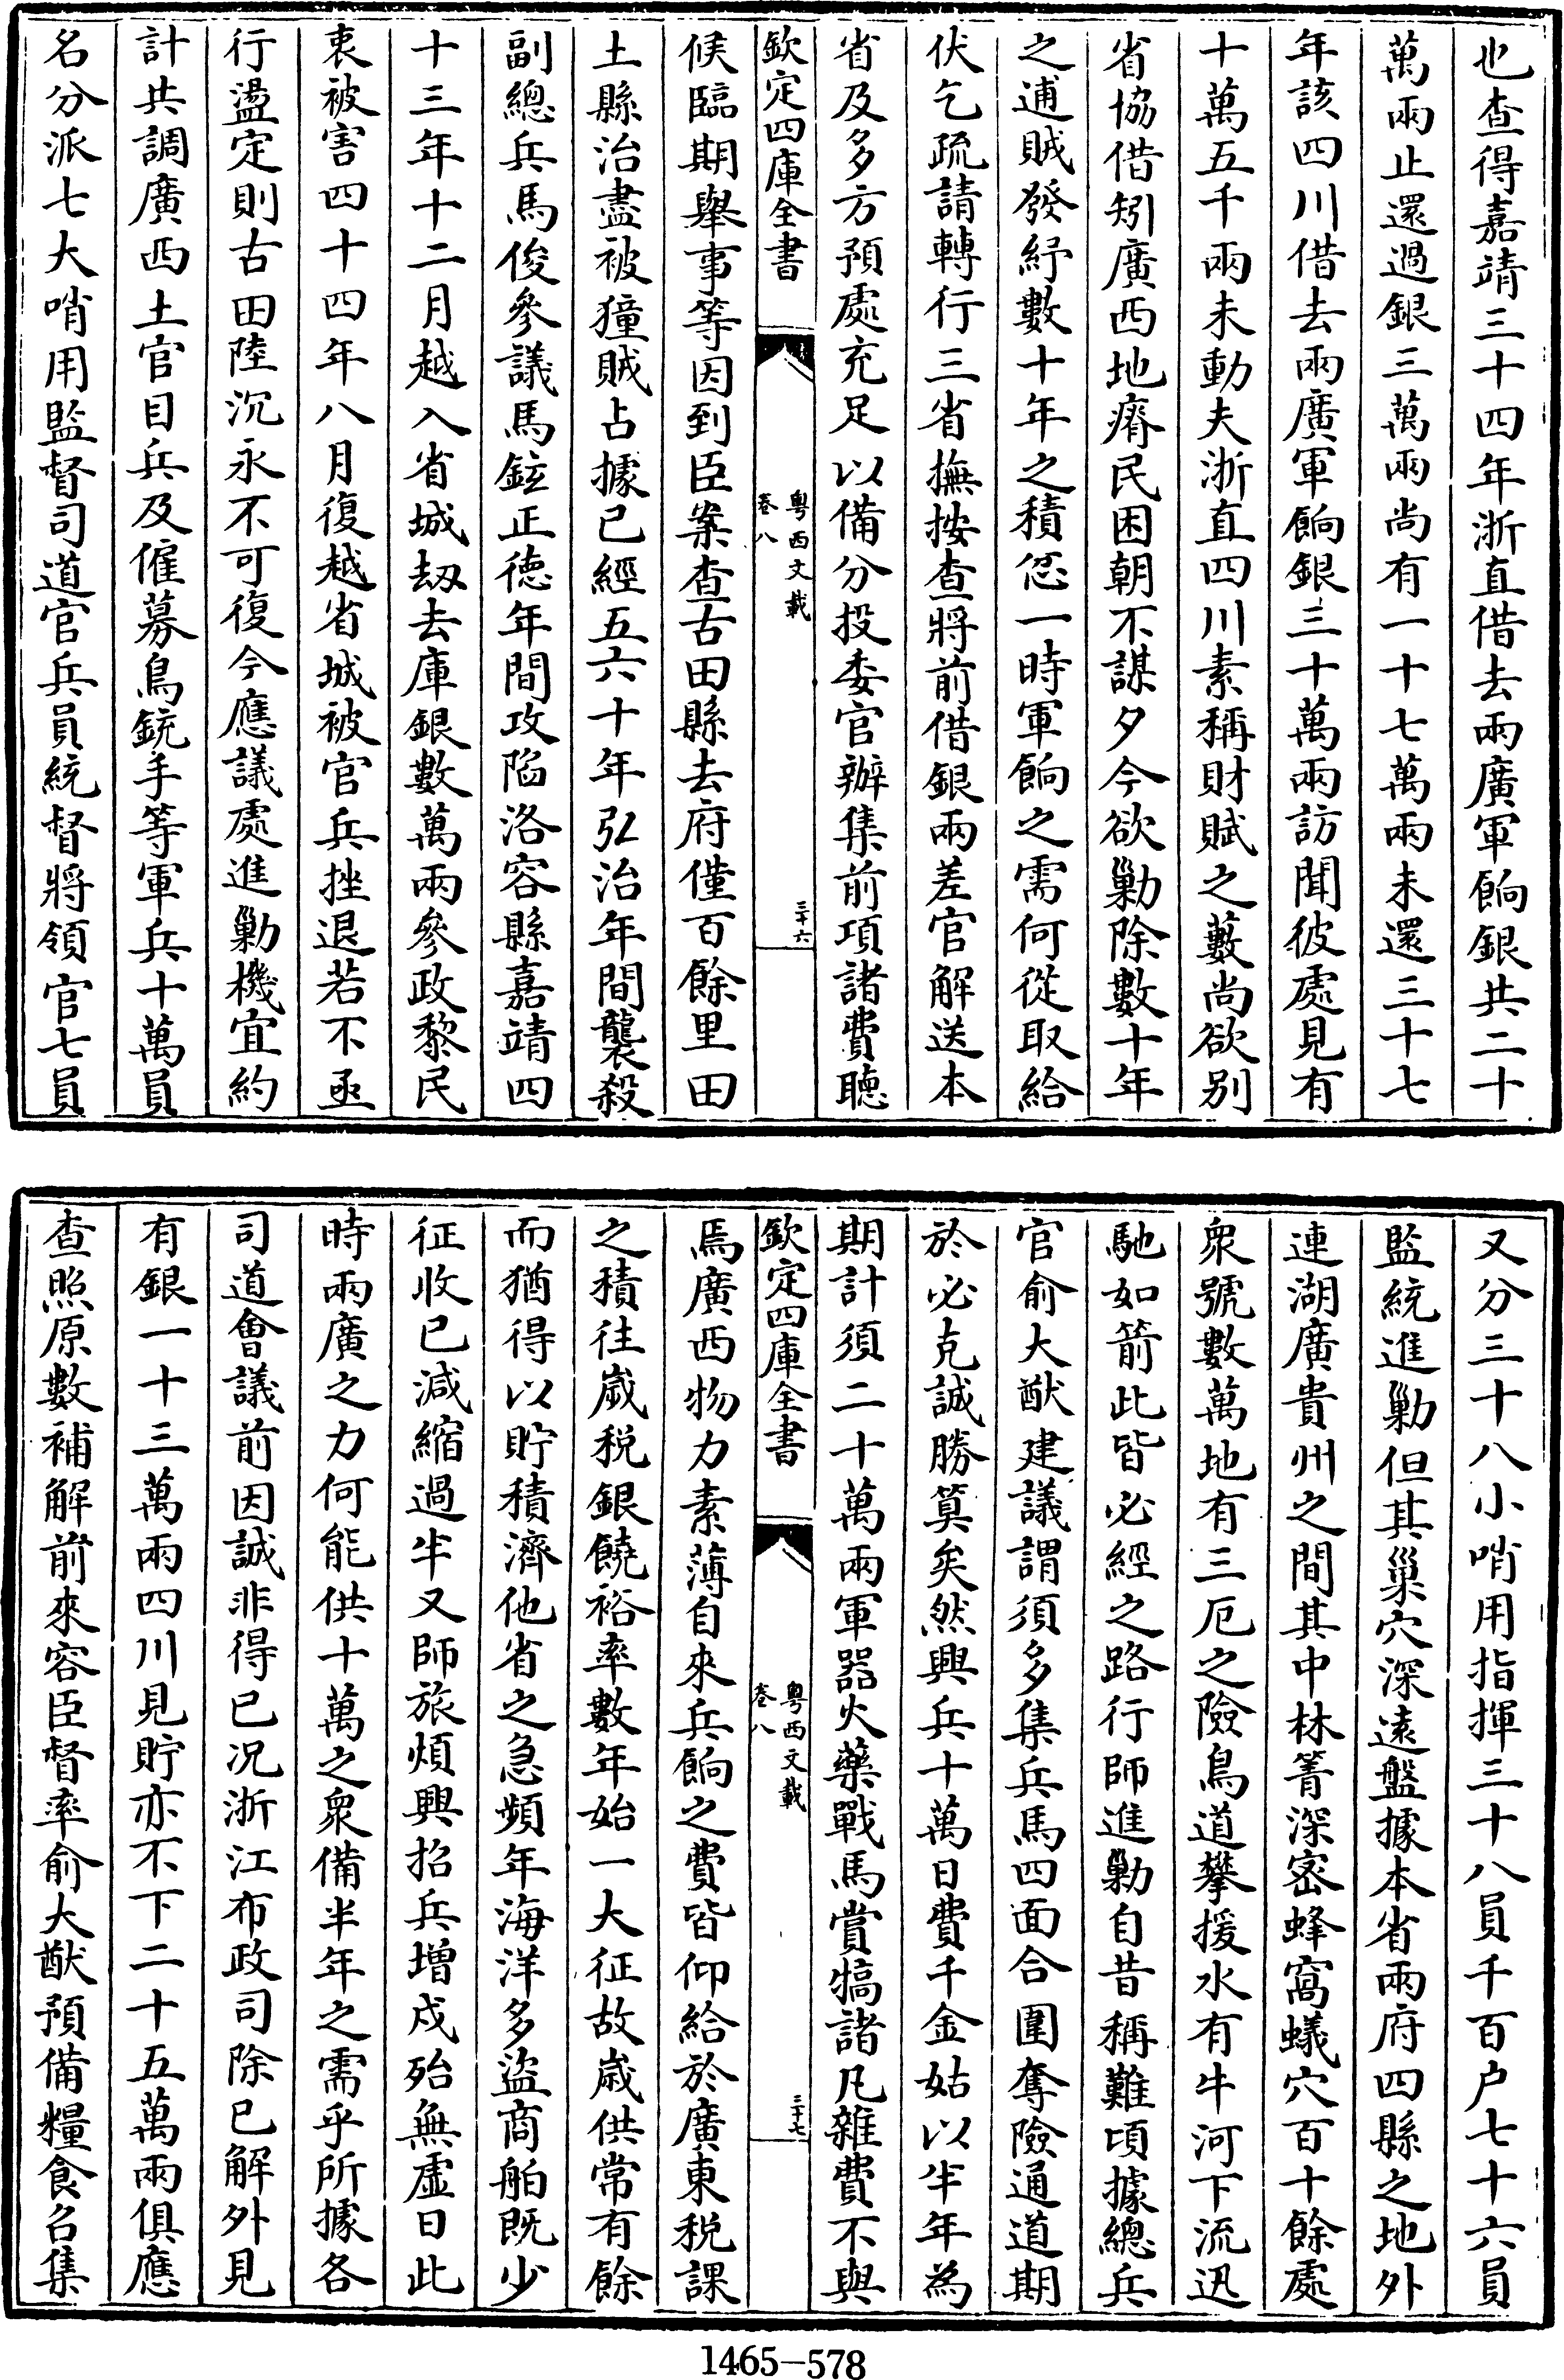 也查得嘉靖三十四年浙直借去兩廣軍餉銀共二十
萬兩止還過銀三萬兩尚有一十七萬兩未還三十七
年該四川借去兩廣軍餉銀三十萬兩訪聞彼處見有
十萬五千兩未動夫浙直四川素稱財賦之藪尚欲别
省協借矧廣西地瘠民困朝不謀夕今欲勦除數十年
之逋賊發紓數十年之積忿一時軍餉之需何從取給
伏乞疏請轉行三省撫按查將前借銀兩差官解送本
省及多方預處充足以備分投委官辦集前項諸費聽
欽定四庫全書
粤西文載
卷八
三十六
候臨期舉事等因到臣案查古田縣去府僅百餘里田
土縣治盡被獞賊占據已經五六十年弘治年間襲殺
副總兵馬俊參議馬鉉正徳年間攻陷洛容縣嘉靖四
十三年十二月越入省城刼去庫銀數萬兩參政黎民
衷被害四十四年八月復越省城被官兵挫退若不亟
行盪定則古田陸沉永不可復今應議處進勦機宜約
計共調廣西土官目兵及僱募鳥銃手等軍兵十萬員
名分派七大哨用監督司道官兵員統督將領官七員
又分三十八小哨用指揮三十八員千百户七十六員
監統進勦但其巢穴深遠盤據本省兩府四縣之地外
連湖廣貴州之間其中林箐深宻蜂窩蟻穴百十餘處
衆號數萬地有三厄之險鳥道攀援水有牛河下流迅
馳如箭此皆必經之路行師進勦自昔稱難頃據總兵
官俞大猷建議謂須多集兵馬四面合圍奪險通道期
於必克誠勝算矣然興兵十萬日費千金姑以半年為
期計須二十萬兩軍器火藥戰馬賞犒諸凡雜費不與
欽定四庫全書
粤西文載
卷八
三十七
焉廣西物力素薄自來兵餉之費皆仰給於廣東税課
之積往嵗税銀饒裕率數年始一大征故嵗供常有餘
而猶得以貯積濟他省之急頻年海洋多盜商舶既少
征收已減縮過半又師旅煩興招兵增戍殆無虚日此
時兩廣之力何能供十萬之衆備半年之需乎所據各
司道會議前因誠非得已况浙江布政司除已解外見
有銀一十三萬兩四川見貯亦不下二十五萬兩俱應
查照原數補解前來容臣督率俞大猷預備糧食召集
1465-578